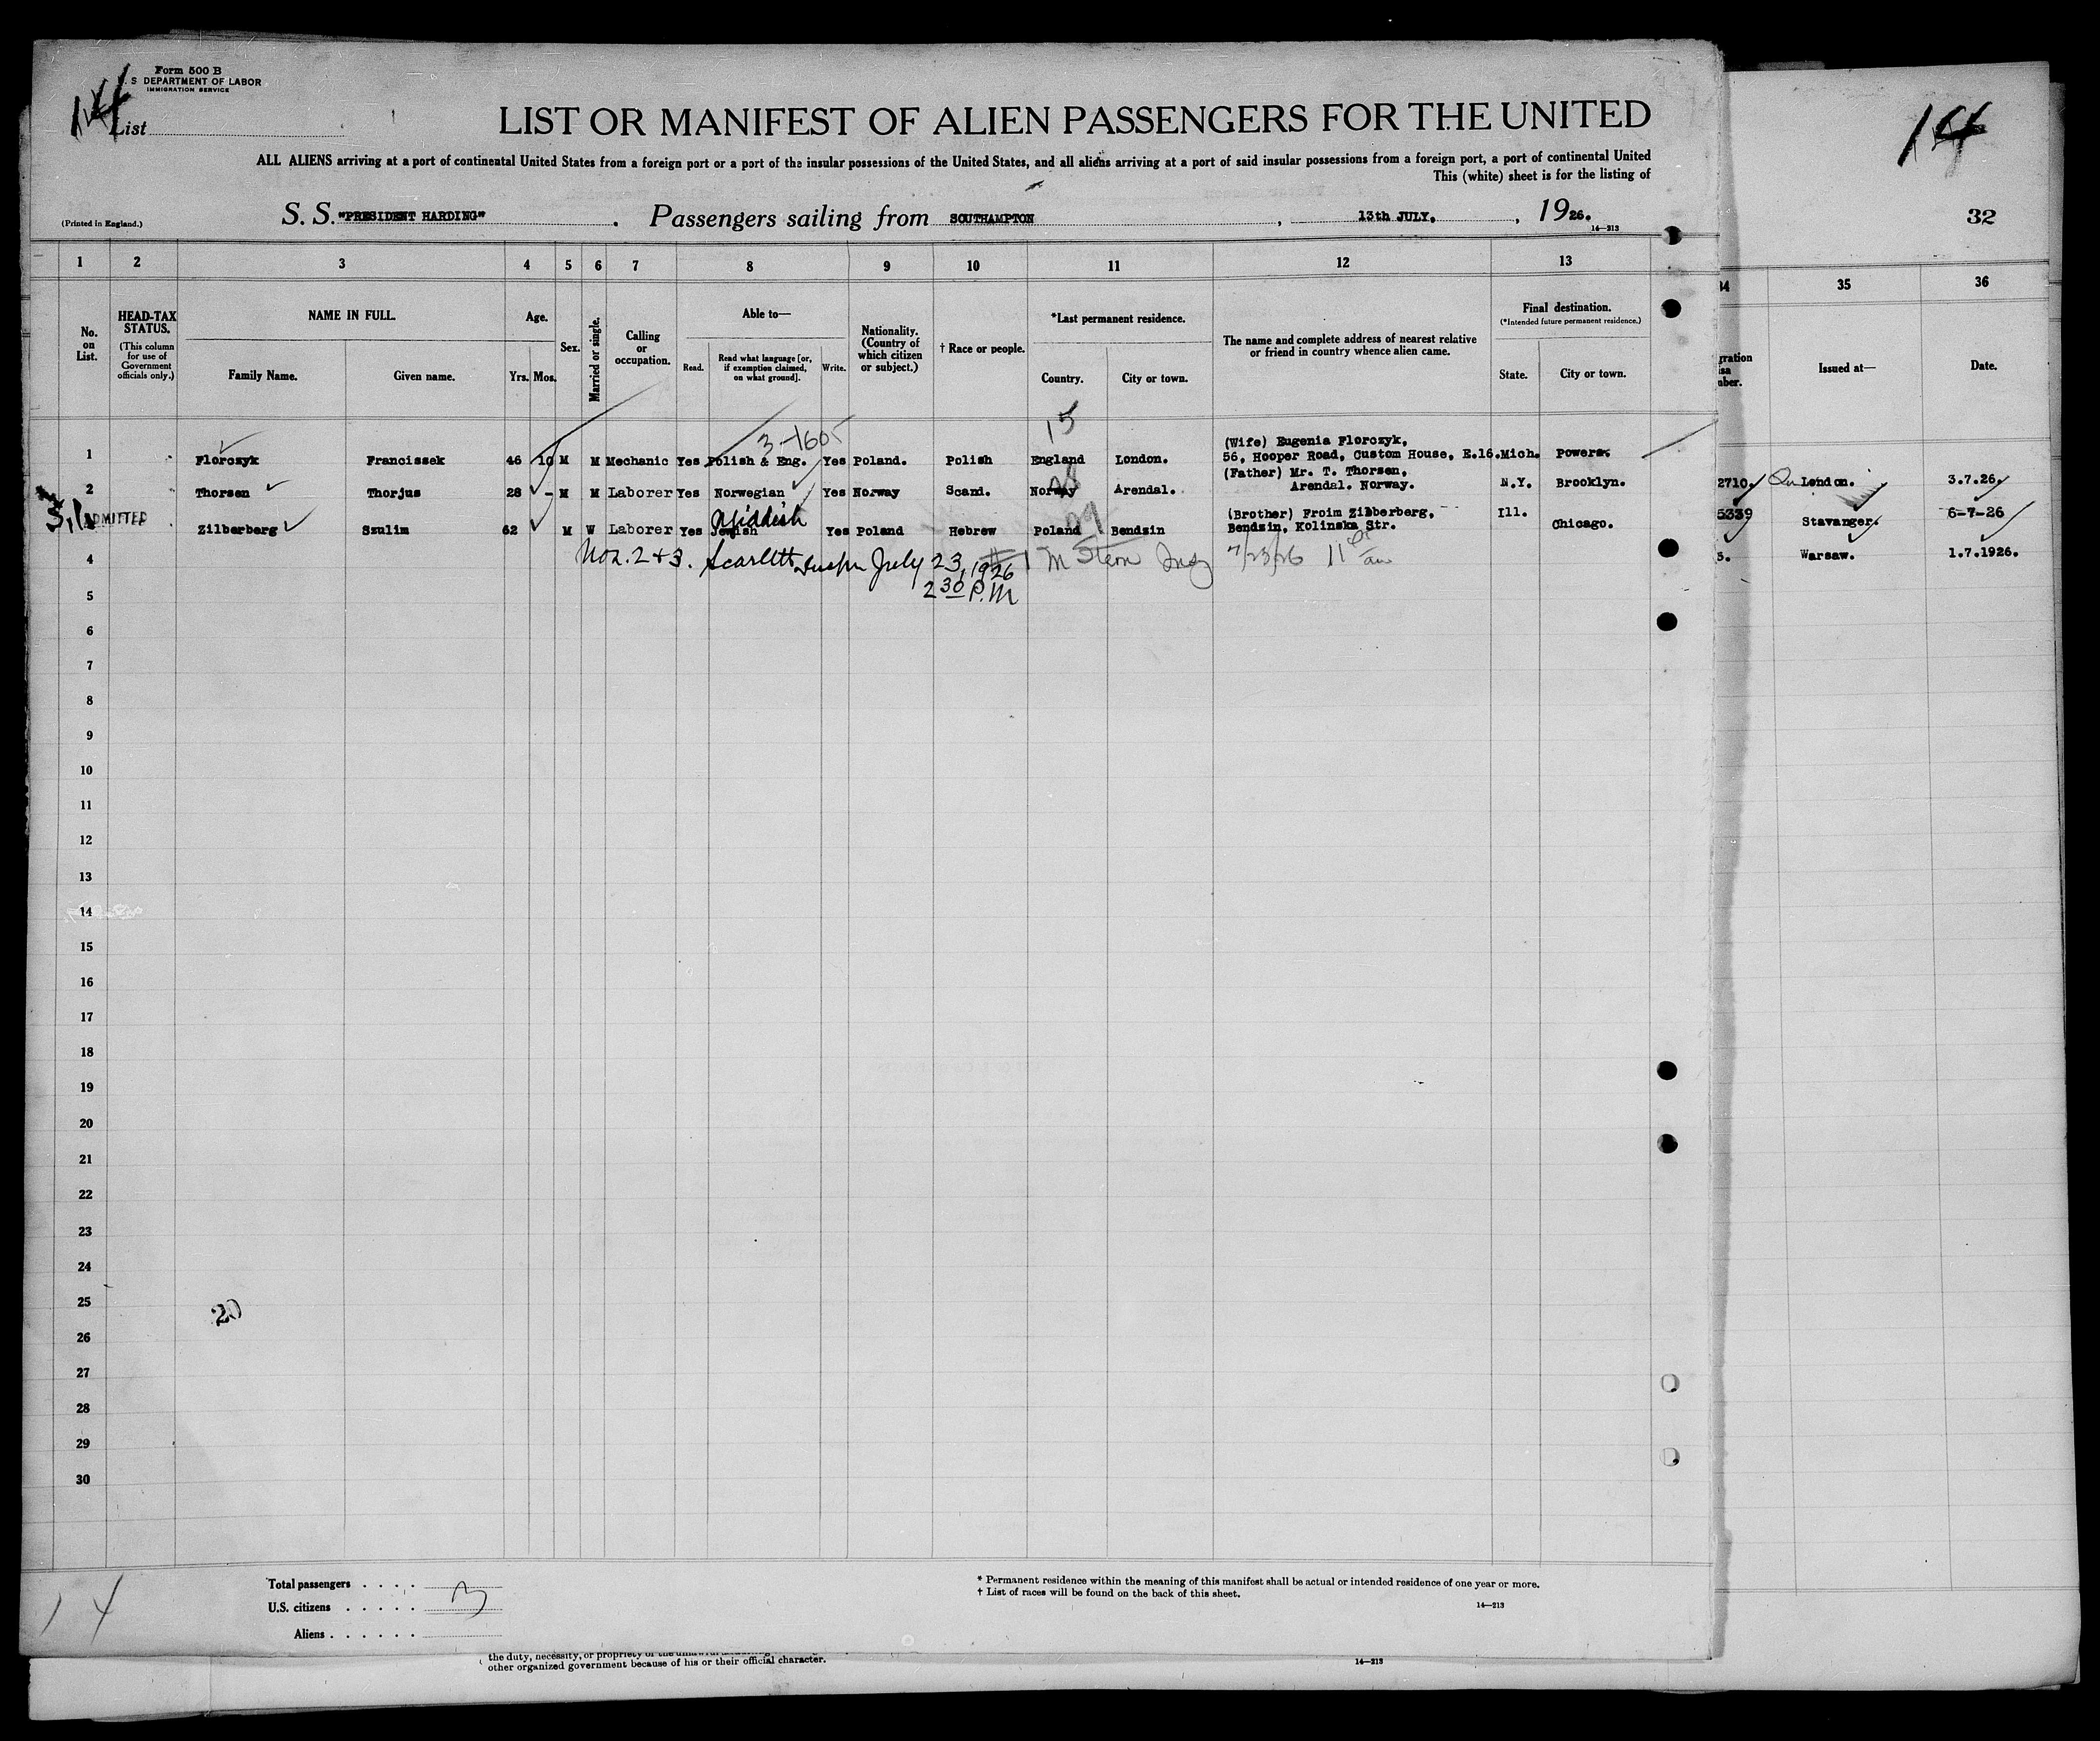 Form 500 B
S DEPARTMENT OF LABOR
IMMIGRATION SERVICE
14
List
LIST OR MANIFEST OF ALIEN PASSENGERS FOR THE UNITED
ALL ALIENS arriving at a port of continental United States from a foreign port or a port of the insular possessions of the United States, and all aliens arriving at a port of said insular possessions from a foreign port, a port of continental United
This (white) sheet is for the listing of
(Printed in England.)
S. S. "PRESIDENT HARDING". Passengers sailing from SOUTHAMPTON, 13th JULY, , 1926.
14—213
1 2 3 4 5 6 7 8 9 10 11 12 13
No. on List.
HEAD-TAX STATUS.
(This column for use of Government officials only.)
NAME IN FULL.
Family Name. Given name.
Age.
Yrs. Mos.
Sex.
Married or single.
Calling or occupation.
Able to—
Read. Read what language [or, if exemption claimed, on what ground]. Write.
Nationality. (Country of which citizen or subject.)
† Race or people.
*Last permanent residence.
Country. City or town.
The name and complete address of nearest relative or friend in country whence alien came.
Final destination.
(*Intended future permanent residence.)
State. City or town.
15
3-1605
1 Florczyk Francissek 46 10 M M Mechanic Yes Polish & Eng. Yes Poland. Polish England London. (Wife) Eugenia Florczyk,
56, Hooper Road, Custom House, E.16. Mich. Powers.
2 Thorsen Thorjus 28 - M M Laborer Yes Norwegian Yes Norway Scand. Norway Arendal. (Father) Mr. T. Thorsen,
Arendal. Norway. N.Y. Brooklyn.
ADMITTED
Yiddish
Zilberberg Szulim 62 M W Laborer Yes Jewish Yes Poland Hebrew Poland Bendzin (Brother) Froim Zilberberg,
Bendzin, Kolinska Str. Ill. Chicago.
Nos. 2 & 3. Scarlett Inspr July 23, 1926
2 30 P.M
#1 M Stern Insp 7/23/26 11 am
4
5
6
7
8
9
10
11
12
13
14
15
16
17
18
19
20
21
22
23
24
25
20
26
27
28
29
30
Total passengers . . . . 3
U.S. citizens . . . . .
Aliens . . . . . .
* Permanent residence within the meaning of this manifest shall be actual or intended residence of one year or more.
† List of races will be found on the back of this sheet.
14—213
14
other organized government because of his or their official character.
14—213
14
32
34 35 36
Issued at— Date.
2710. London. 3.7.26.
5339 Stavanger. 6-7-26
Warsaw. 1.7.1926.